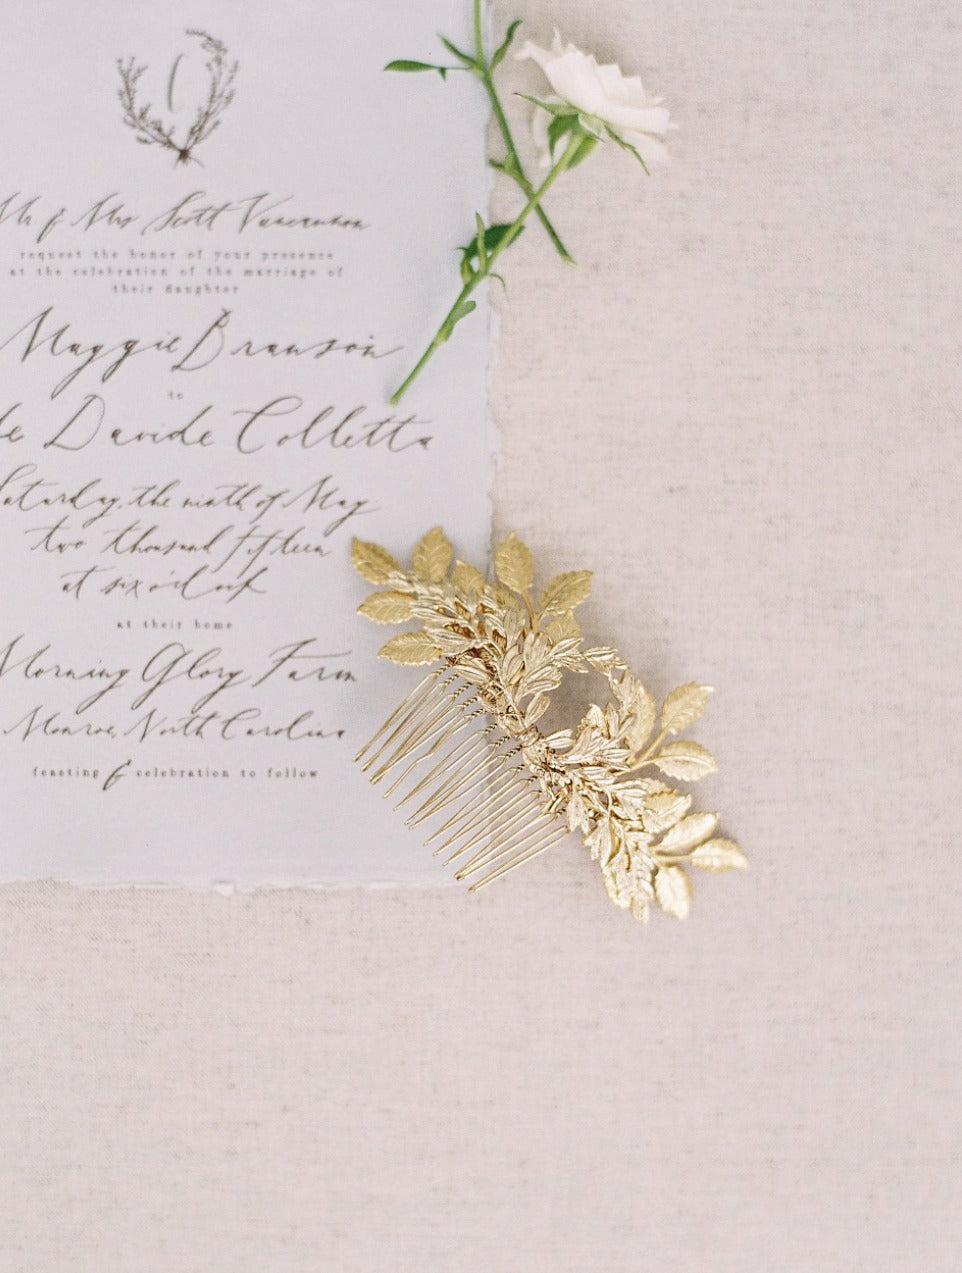 C
Mr & Mrs Scott Vancannon
request the honor of your presence
at the celebration of the marriage of
their daughter
Maggie Branson
to
Davide Colletta
Saturday, the ninth of May
two thousand fifteen
at six o'clock
at their home
Morning Glory Farm
Monroe, North Carolina
feasting & celebration to follow